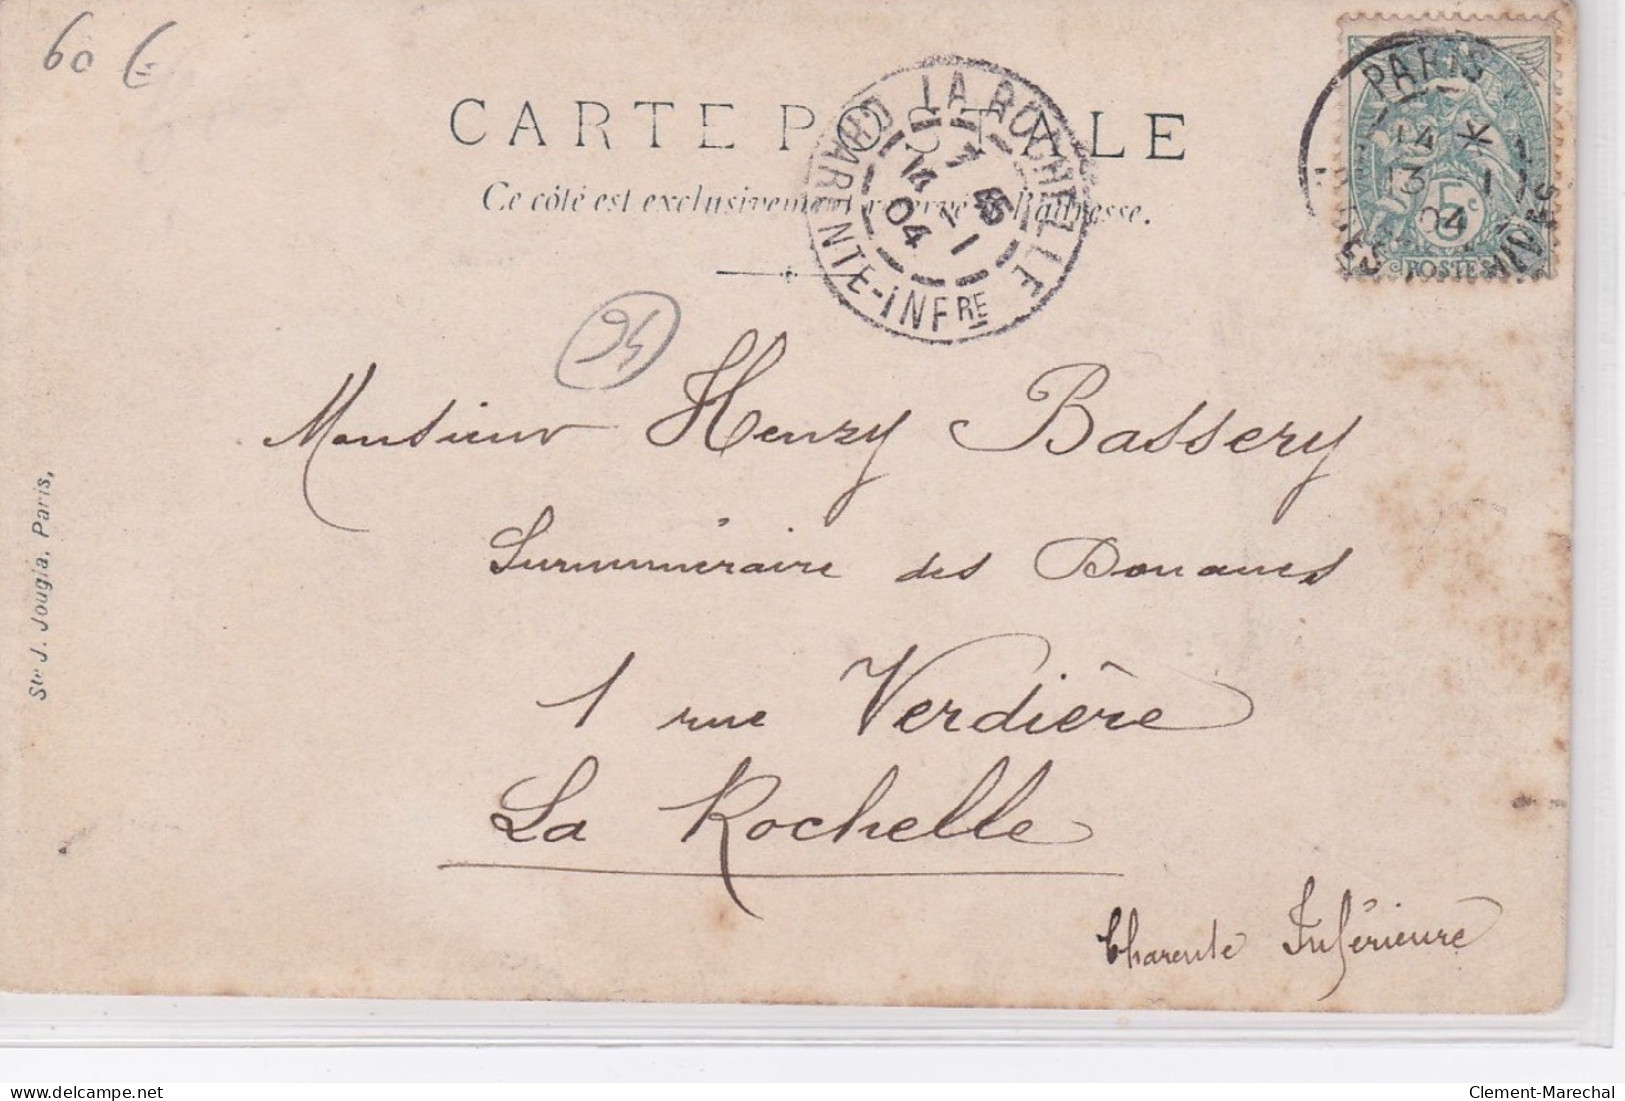 60 €
CARTE POSTALE
Ce côté est exclusivement réservé à l'adresse.
LA ROCHELLE
CHARENTE-INFRE
7 45
14 1
04
PARIS
14 *
13 1
04
5c
POSTES
94
Monsieur Henry Bassery
Surnuméraire des Douanes
1 rue Verdière
La Rochelle
Charente Inférieure
Sté J. Jougla, Paris,
delcampe.net
Clement-Marechal